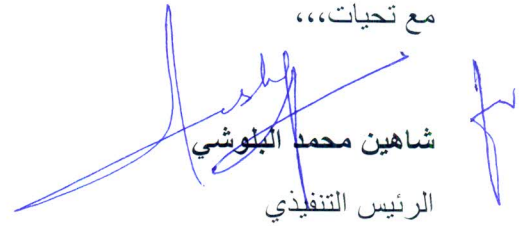 مع تحيات،،،
شاهين محمد البلوشي
الرئيس التنفيذي